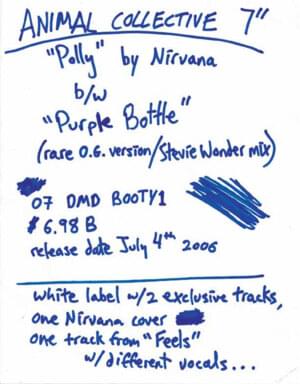 ANIMAL COLLECTIVE 7"
"Polly" by Nirvana
b/w
"Purple Bottle"
(rare O.G. version/Stevie Wonder mix)
07 DMD BOOTY1
$6.98 B
release date July 4th 2006
white label w/2 exclusive tracks,
one Nirvana cover
one track from "Feels"
w/different vocals...